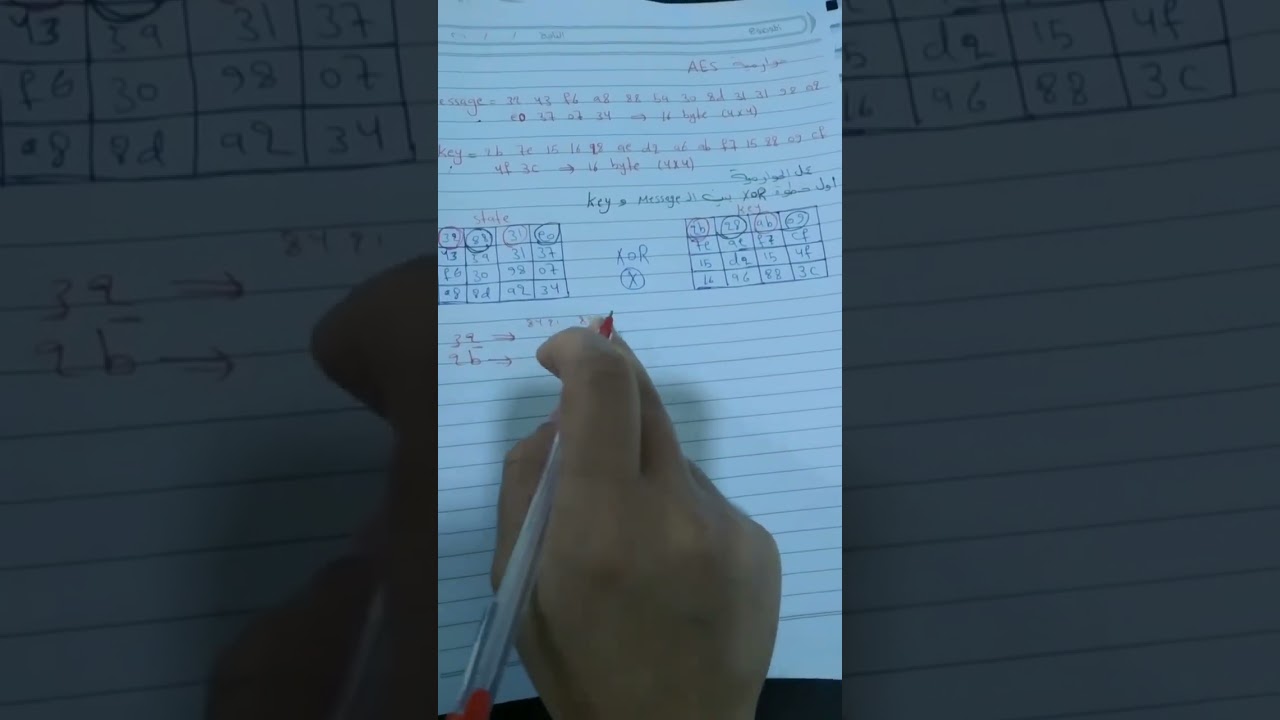 خوارزمية AES
essage = 32 43 f6 a8 88 5a 30 8d 31 31 98 a2
e0 37 07 34 → 16 byte (4x4)
key = 2b 7e 15 16 28 ae d2 a6 ab f7 15 88 09 cf
4f 3c → 16 byte (4x4)
اول خطوة XOR بين ال Message و key
state
32 88 31 e0
43 5a 31 37
f6 30 98 07
a8 8d a2 34
XOR
X
key
2b 28 ab 09
7e ae f7 cf
15 d2 15 4f
16 a6 88 3c
8421
32 →
2b →